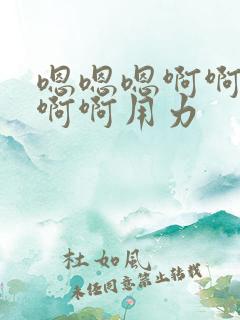 嗯嗯嗯啊啊
啊啊用力
杜如风
未经同意禁止转载